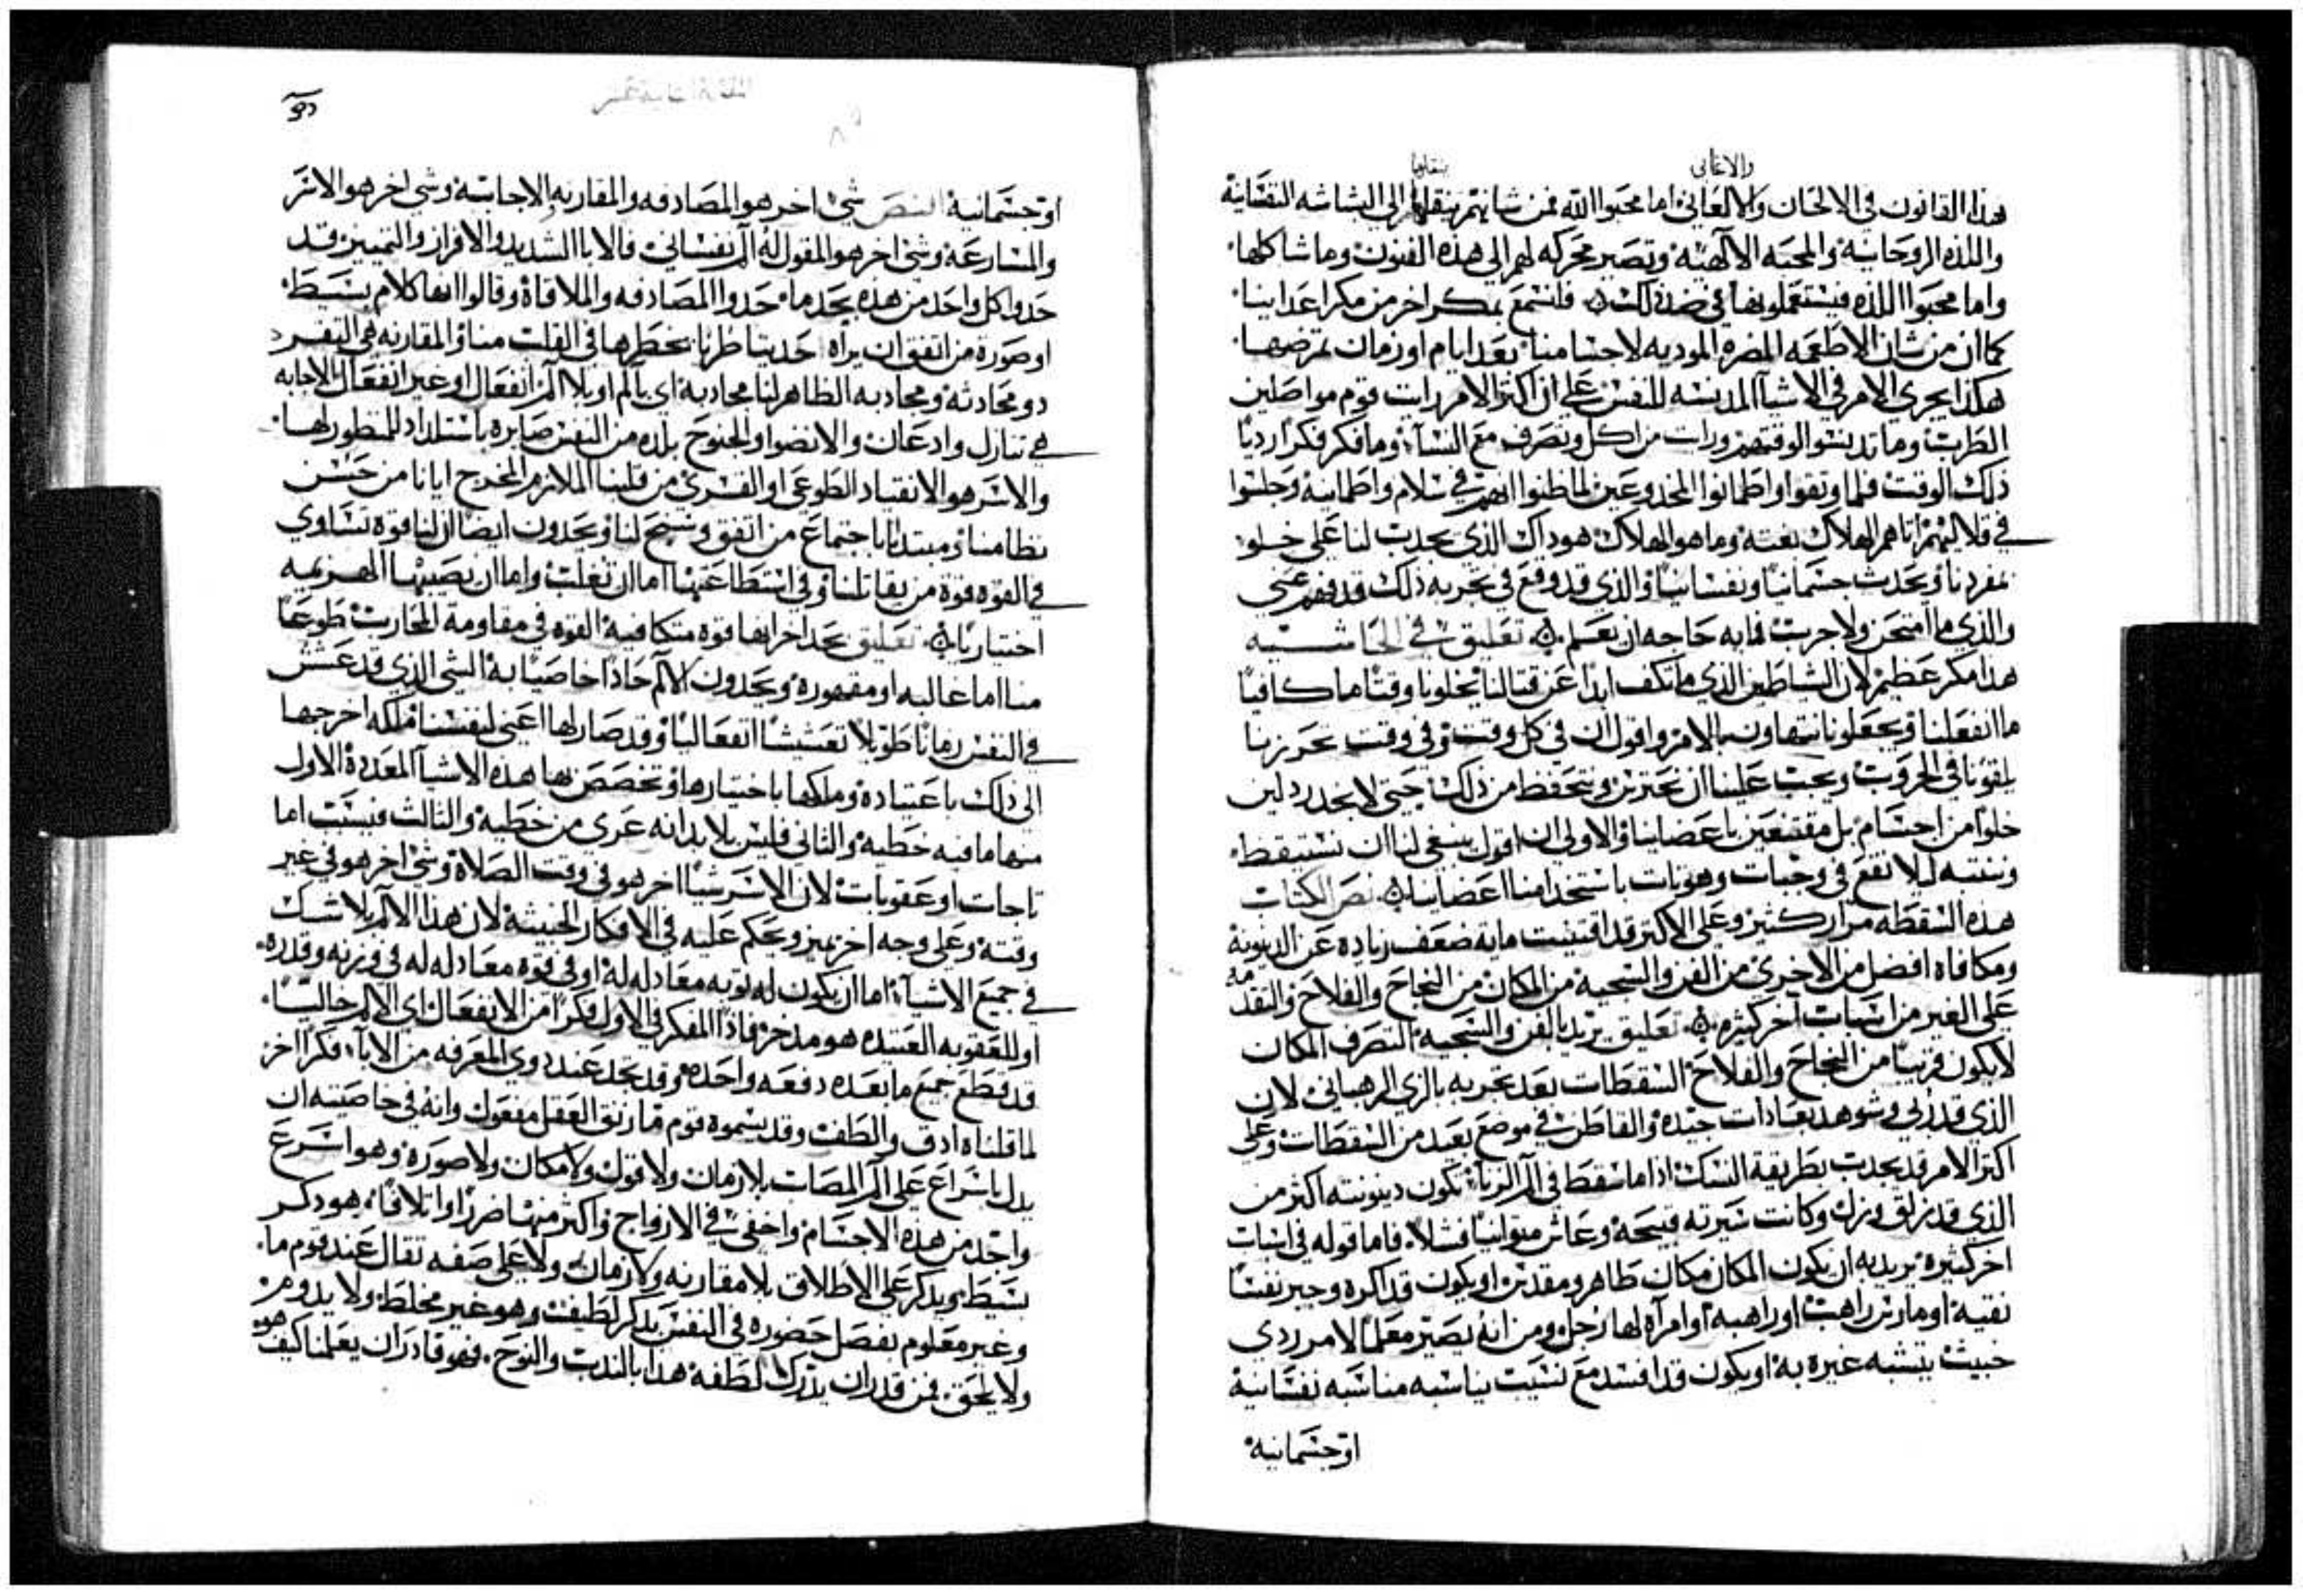 والاغاني
بنقلها
هذا القانون في الالحان والالغاني اما محبوا الله فمن شانهم بنقلها الى البشاشه النفسانية
واللذه الروحانية والمحبه الالهيه وتصير محركه لهم الى هذه الفنون وما شاكلها
واما محبوا اللذه فيستعملونها في ضد ذلك فلنسمع بمكر اخر من مكر اعداينا
كما ان من شان الاطعمه المضره الموديه لاجسامنا بعد ايام او زمان تمرضها
هكذا يجري الامر في الاشيا المدنسه للنفس على ان اكثر الامر رايت قوم مواصلين
الطرب وما تدنسوا لوقتهم ورايت من اكل وتصرف مع النسآ وما فكر فكرا رديا
ذلك الوقت فلما وثقوا واطمانوا المخدوعين لما ظنوا انهم في سلام واطمانيه وجلسوا
في قلاليهم اتاهم الهلاك بغته وما هو الهلاك هو ذاك الذي يحدث لنا على خلو
تفردنا ويحدث جسمانيا ونفسانيا والذي قد وقع في تجربه ذلك قد فهم عني
والذي ما امتحن ولا جرب فما به حاجه ان يعلم تعليق في الحاشيه
هذا مكر عظيم لان الشياطين الذي ما تكف ابدا عن قتالنا يخلونا وقتا ما كافيا
ما انفعلنا ويجعلونا نتهاون بالامر واقول ان في كل وقت وفي وقت تحريزنا
يلقونا في الحروب ويجب علينا ان نحترس ونتحفظ من ذلك حتى لا
خلوا من احتشام بل مقتنعين باعضاينا والاولى ان اقول ينبغي لنا ان نستيقظ
وننتبه ليلا نقع في وجبات وهوات باستخدامنا اعضاينا نص الكتاب
هذه السقطه مرار كثير وعلى الاكثر قد اقتنيت مايه ضعف زياده عن الدينونة
ومكافاه افضل من الاخرى من الفن والسجيه من المكان من النجاح والفلاح والتقدمه
على الغير من اسباب اخر كثيره تعليق يريد بالفن والسجيه التصرف المكان
لا يكون قريبا من النجاح والفلاح السقطات بعد تجربه بالزي الرهباني لان
الذي قد رُبي وشوهد بعادات جيده والقاطن في موضع بعيد من السقطات وعلى
اكثر الامر قد يحدث بطريقة النسك اذا ما سقط في الم الزنا تكون دينونته اكثر من
الذي قد زلق وزل وكانت سيرته قبيحة وعاش متوانيا فشلا فاما قوله في اسباب
اخر كثيره يريد به ان يكون المكان مكان طاهر ومقدس او يكون قد اكره وجبر نفسا
نقيه او مارس راهب او راهبه او امرآه لها رجل ومن انه يصير معلما لامر ردي
خبيث يتشبه غيره به او يكون قد افسد مع نسيب يناسبه مناسبه نفسانية
او جسمانية
او جسمانية النص شي اخر هو المصادفه والمقارنه الاجابيه وشي اخر هو الاثر
والمسارعة وشي اخر هو المقول له الم نفساني فالابا الشديدو الافراز والتمييز قد
حدوا كل واحد من هذه بحد ما حدوا المصادفه والملاقاة وقالوا انها كلام بسيط
او صورة من اتفق ان يراه حديثا طرنا بخطرها في القلب منا والمقارنه هي التفرد
دو محادثه ومجاذبه الظاهر لنا مجاذبة اي بالم او بلا الم انفعال او غير انفعال الاجابه
هي تنازل واذعان والانضوا والجنوح بلذه من النفس صايره باستلذاذ للمنظور لها
والاسر هو الانقياد الطوعي او القسري من قلبنا الملازم المخرج ايانا من حسن
نظامنا ومبتدانا باجتماع من اتفق وسنح لنا ويحدون ايضا ان لنا قوه تساوي
في القوه قوة من يقاتلنا وفي استطاعتها اما ان تغلب واما ان يصيبها الهزيمه
اختياريا تعليق يحد اخر انها قوه متكافية القوه في مقاومة المحارب طوعا
منا اما غالبه او مقهورة ويحدون الالم حادا خاصيا به الشي الذي قد عشش
في النفس زمانا طويلا تعششا انفعاليا وقد صار لها اعني لنفسنا ملكه اخرجها
الى ذلك باعتياده وملكها باختيارها وتخصص بها هذه الاشيا المعدده الاول
منها ما فيه خطيه والثاني فليس بلابد انه عرى من خطيه والثالث فبسبب اما
تاجات او عقوبات لان الاسر شيا اخر هو في وقت الصلاة وشي اخر هو في غير
وقته وعلى وجه اخر يميز ويحكم عليه في الافكار الخبيثه لان هذا الالم بلا شك
في جميع الاشيآ اما ان يكون له توبه معادله له او في قوه معادله له في وزنه وقدره
او للعقوبه العتيده هو مدخر فاذا المفكر في الاول فكرا من الانفعال اي الالم خاليا
قد قطع جميع ما بعده دفعه واحده وقد تجد عند ذوي المعرفه من الابآ فكرا اخر
لما قلناه ادق والطف وقد يسموه قوم مارق العقل مفعول وانه في خاصيته ان
يدل باسراع على الم المصاب بلا زمان ولا قول ولا مكان ولا صوره وهو اسرع
واحد من هذه الاجسام واخفى في الارواج واكثر منها ضررا واتلافا هو ذكر
بسيط ويذكر على الاطلاق بلا مقارنه ولا زمان ولا على صفه تقال عند قوم ما
وغير معلوم بفصل حضوره في النفس بذكر لطيف وهو غير مخلط ولا يدوم
ولا يلحق فمن قدر ان يدرك لطفه هذا بالندب والنوح فهو قادر ان يعلمنا كيف هو